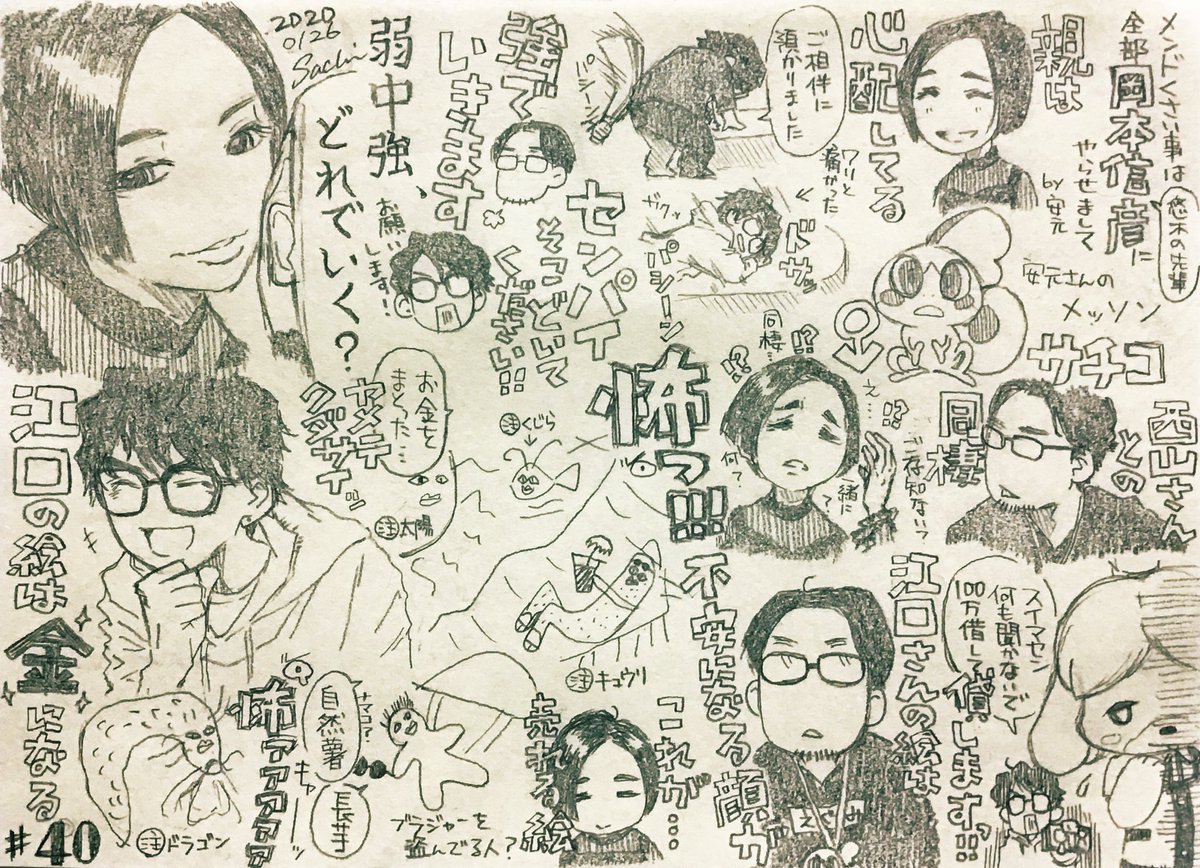 メンドくさい事は
悠木の先輩
全部岡本信彦に
やらせまして
by 安元
親は
心配してる
ご相伴に
預かりました
パシーン
ワリと
痛かった
ドサッ
ガクッ
パシーン
強で
いきます
2020
0126
Sachi
弱中強、
どれでいく?
お願い
します!
センパイ
そこどいて
ください!!
安元さんの
メッソン
サチコ
西山さん
との
同棲
え…!?
ご存知ない?
一緒に?
同棲…
!?
!?
何?
怖っ!!!
注くじら
お金を
まとった…
ヤメテ
クダサイッ
注太陽
注キュウリ
江口の絵は
金になる
スイマセン
何も聞かないで
100万借して
償しますっ!!
江口さんの絵は
不安になる顔が
「これが…
売れる絵
ナマコ?
自然薯
キャーッ
長芋
怖アアアアア
ブラジャーを
盗んでる人?
注ドラゴン
#40